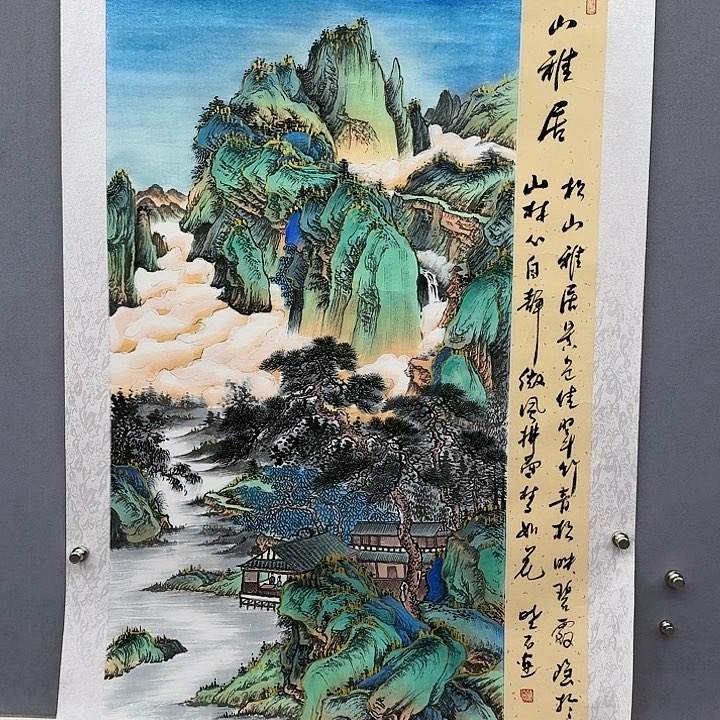 山雅居
松山雅居景色佳翠竹青松映碧霞隐於
山林心自静微风拂面梦如花